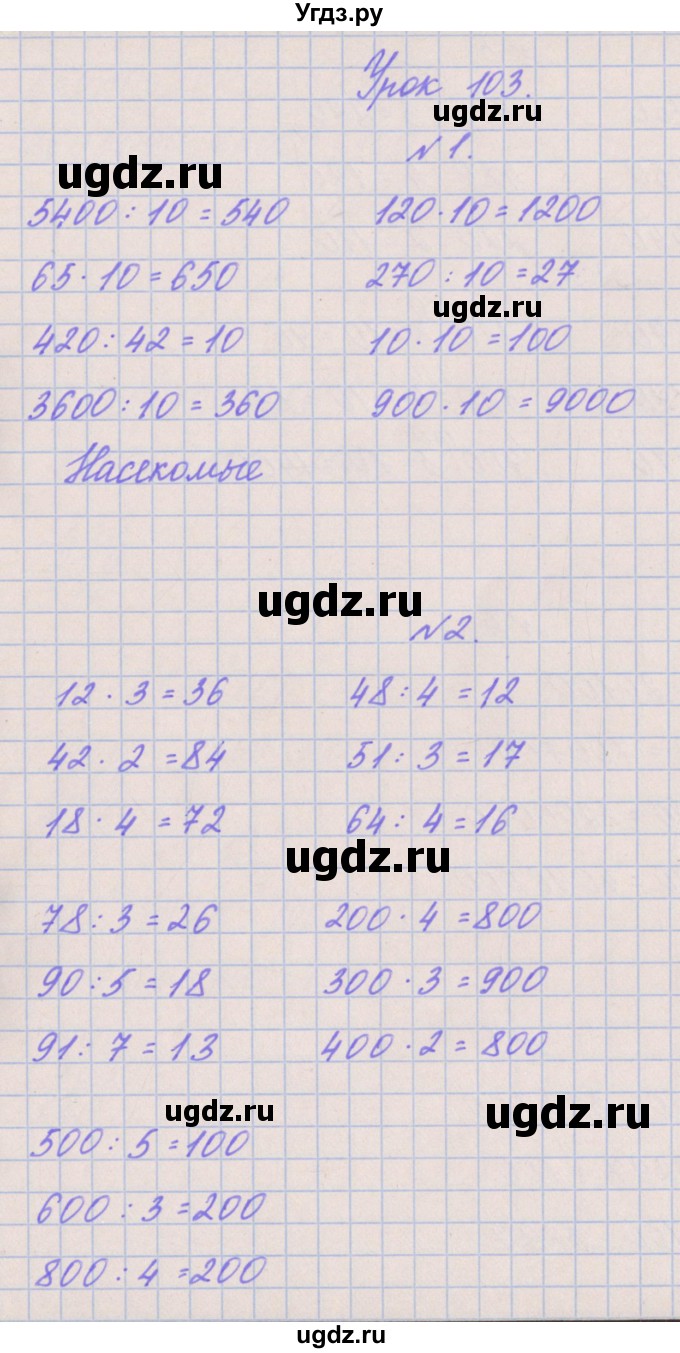 Угдз.ру
Урок 103.
ugdz.ru
№1.
ugdz.ru
5400 : 10 = 540 120 · 10 = 1200
65 · 10 = 650 270 : 10 = 27
ugdz.ru
420 : 42 = 10 10 · 10 = 100
3600 : 10 = 360 900 · 10 = 9000
Насекомые
ugdz.ru
№2.
12 · 3 = 36 48 : 4 = 12
42 · 2 = 84 51 : 3 = 17
18 · 4 = 72 64 : 4 = 16
ugdz.ru
78 : 3 = 26 200 · 4 = 800
90 : 5 = 18 300 · 3 = 900
91 : 7 = 13 400 · 2 = 800
ugdz.ru ugdz.ru
500 : 5 = 100
600 : 3 = 200
800 : 4 = 200
ugdz.ru